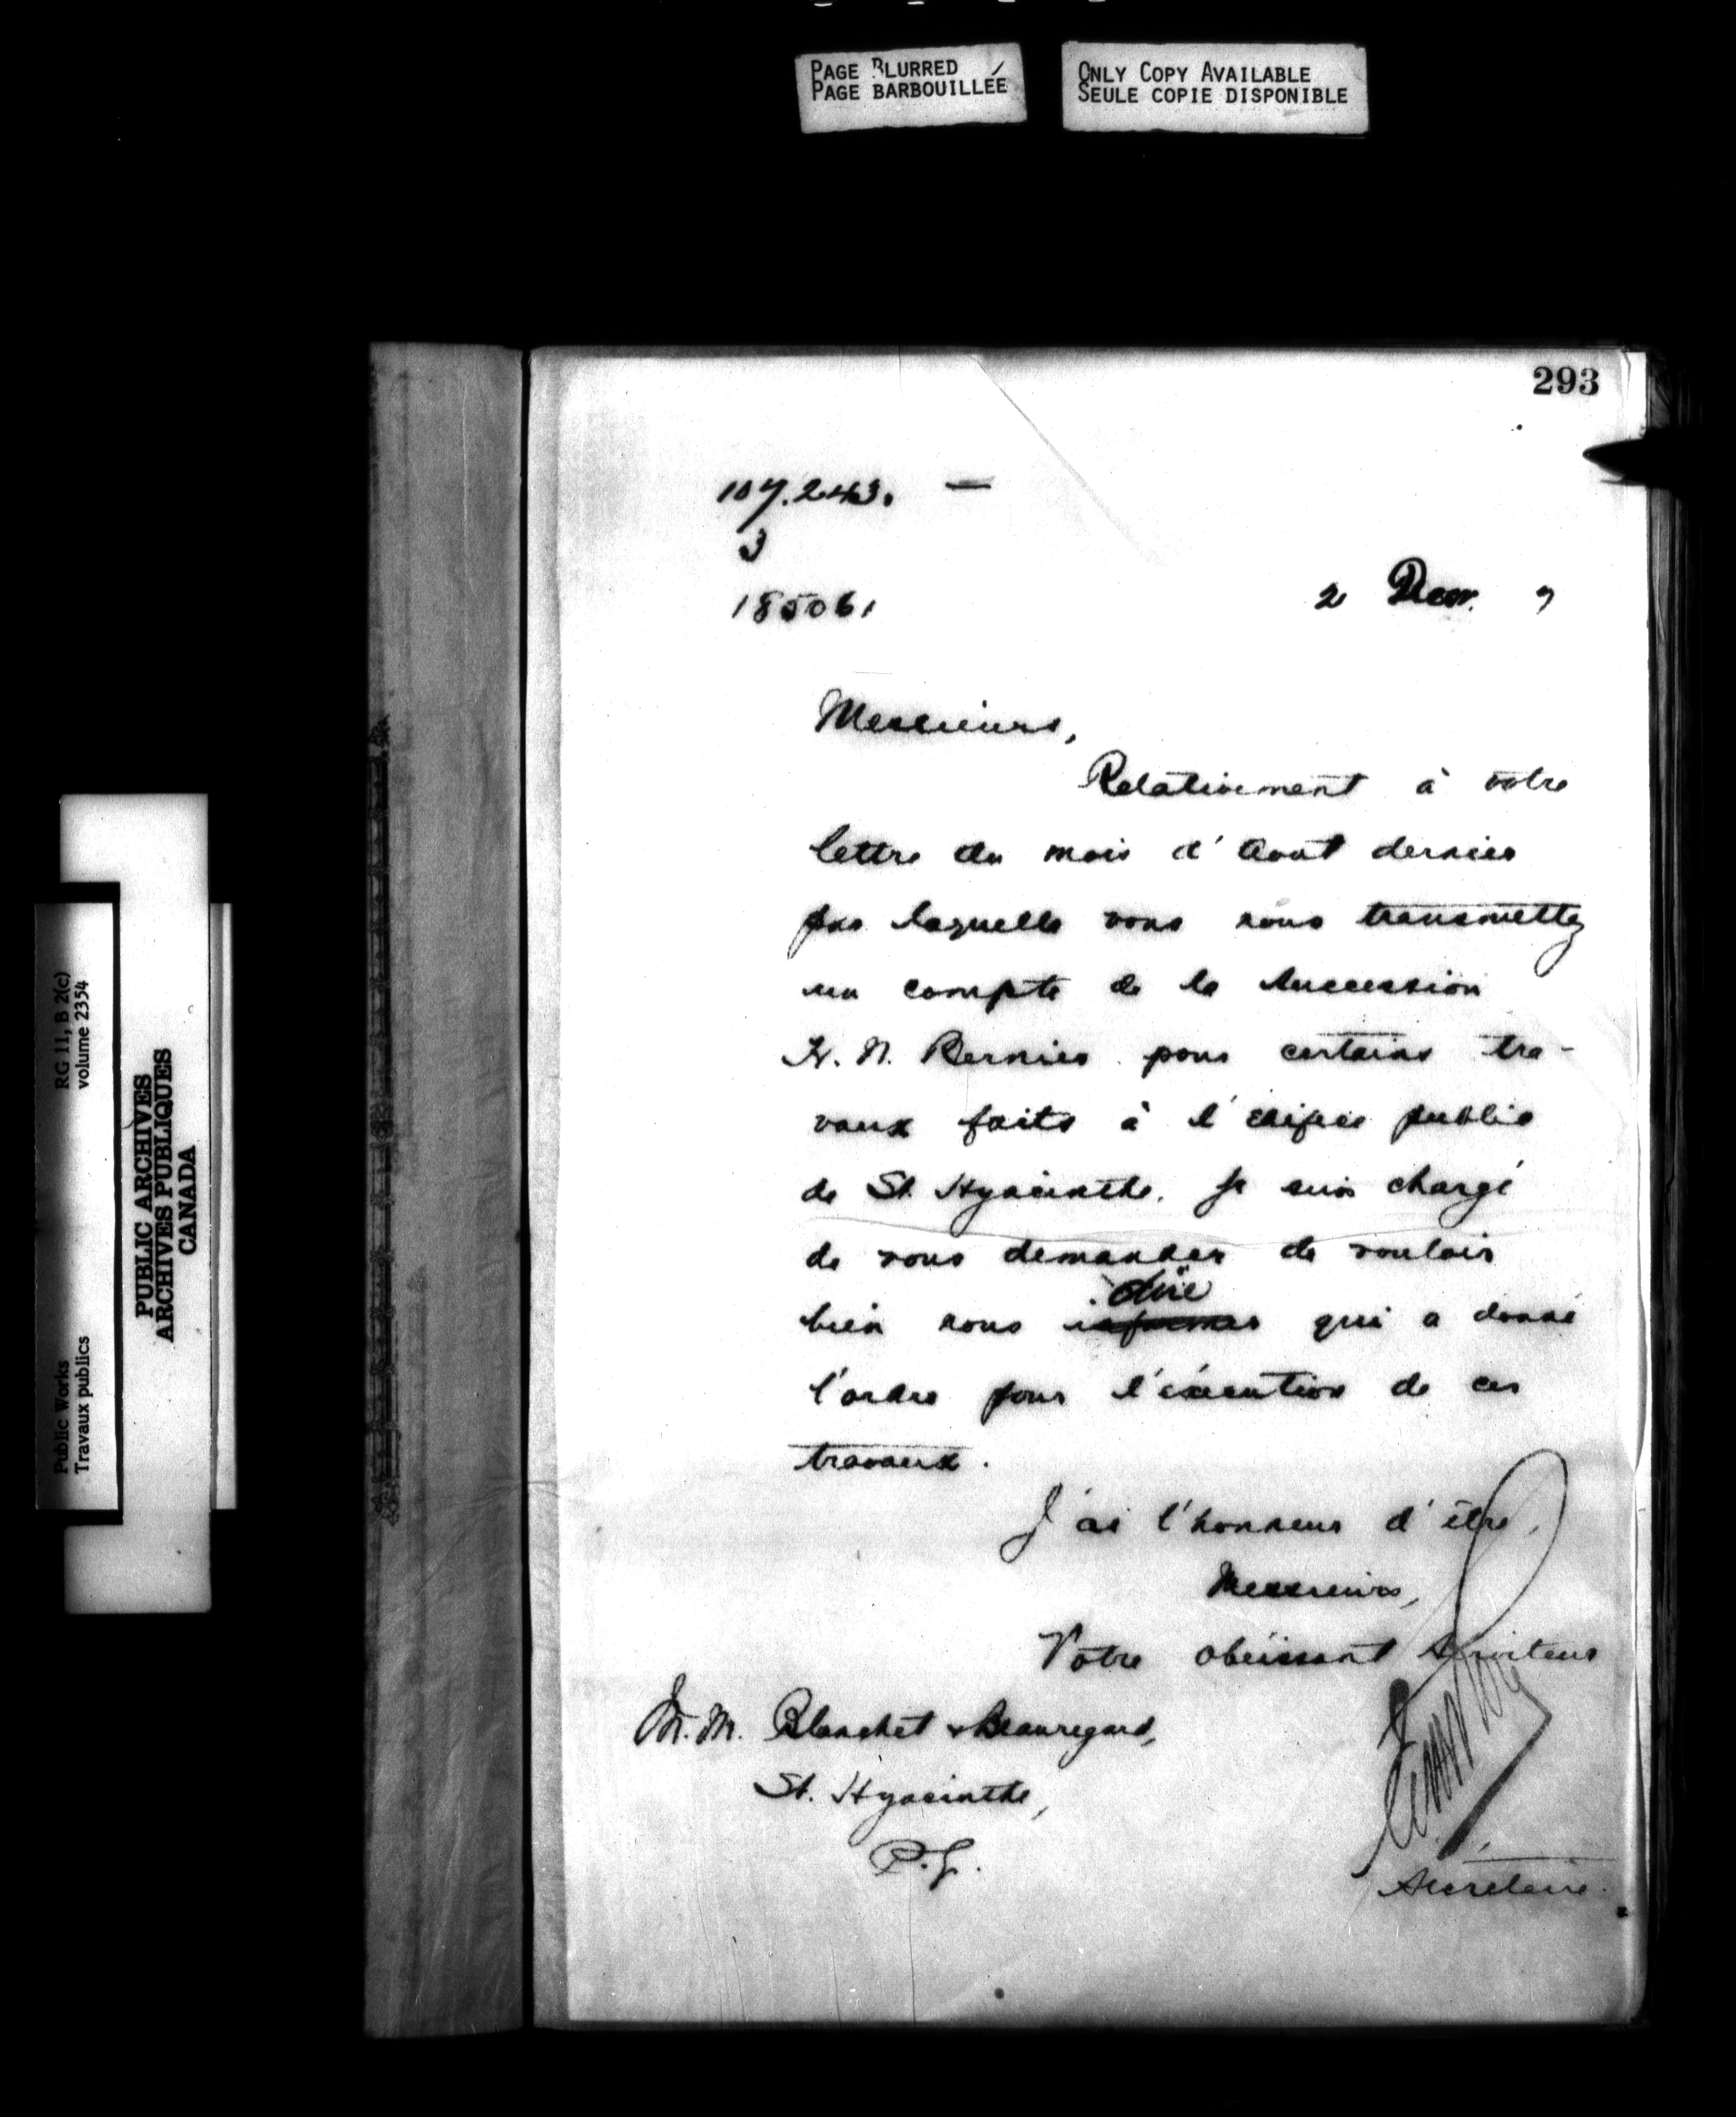 PAGE BLURRED
PAGE BARBOUILLÉE
ONLY COPY AVAILABLE
SEULE COPIE DISPONIBLE
293
107.243. —
3
18506,
2 Decr. 7
Messieurs,
Relativement à votre
lettre du mois d'Aout dernier
par laquelle vous nous transmettez
un compte de la succession
H. N. Bernier pour certains tra-
vaux faits à l'édifice public
de St. Hyacinthe. Je suis chargé
de vous demander de vouloir
dire
bien nous informer qui a donné
l'ordre pour l'éxécution de ces
travaux.
J'ai l'honneur d'être,
Messieurs,
Votre obéissant serviteur
M.M. Blanchet & Beauregard,
St. Hyacinthe,
P.Q.
Secrétaire.
Public Works
Travaux publics
RG 11, B 2(c)
volume 2354
PUBLIC ARCHIVES
ARCHIVES PUBLIQUES
CANADA